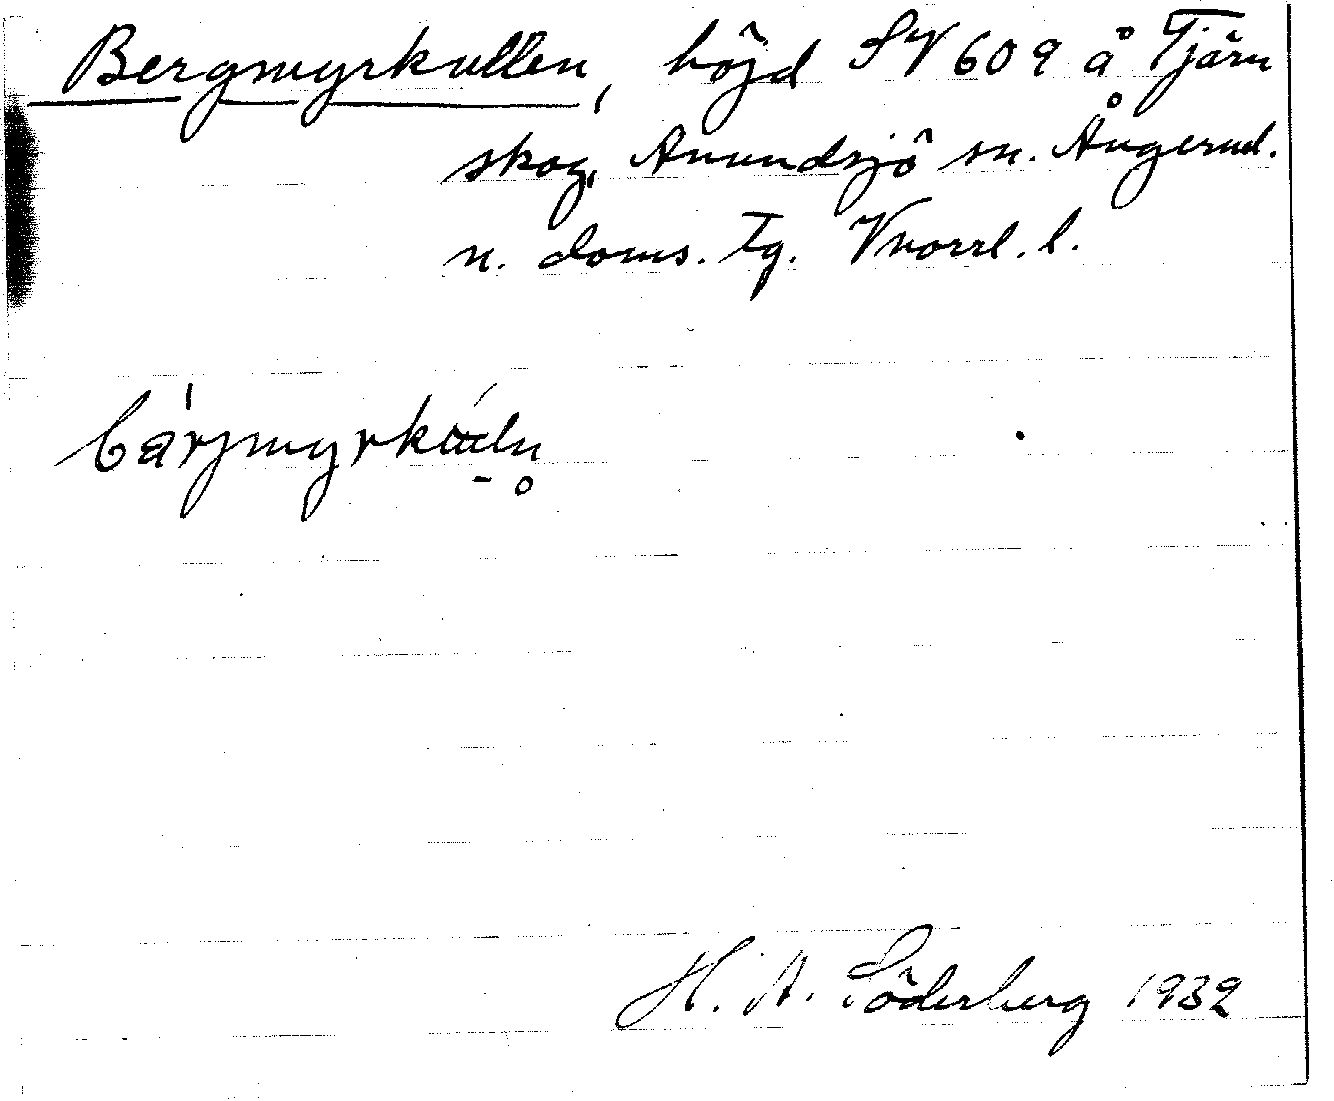 Bergmyrkullen, höjd SV 609 å Tjärn
skog, Anundsjö sn. Ångerml.
n. doms. tg. Vnorrl. l.
H. A. Söderberg 1932